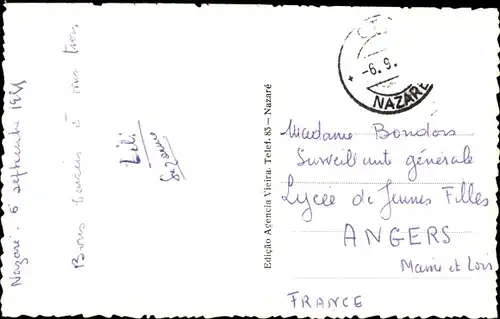 Nazaré. 6 septembre 19
Bons baisers à vous tous
Lili
Suzanne
Edição Agencia Vieira. Telef. 85 — Nazaré
-6. 9.
NAZARÉ
Madame Bondois
Surveillante générale
Lycée de Jeunes Filles
ANGERS
Maine et Loire
FRANCE